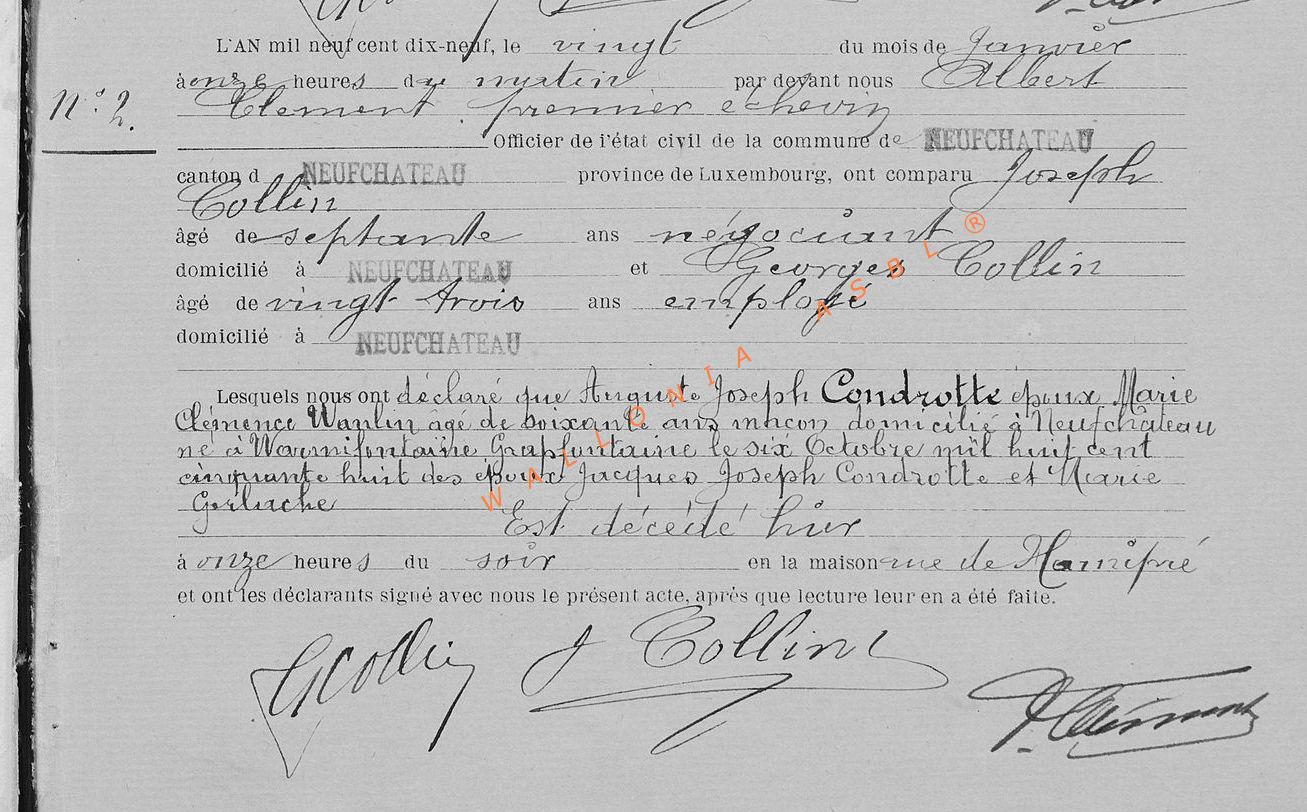 L'AN mil neuf cent dix-neuf, le vingt du mois de Janvier
à onze heures du matin par devant nous Albert
N° 2. Clement premier échevin
Officier de l'état civil de la commune de NEUFCHATEAU
canton d NEUFCHATEAU province de Luxembourg, ont comparu Joseph
Collin
âgé de septante ans négociant
domicilié à NEUFCHATEAU et Georges Collin
âgé de vingt trois ans employé
domicilié à NEUFCHATEAU
Lesquels nous ont déclaré que Auguste Joseph Condrotte époux Marie
Clémence Wanlin âgé de soixante ans maçon domicilié à Neufchâteau
né à Warmifontaine Grapfontaine le six Octobre mil huit cent
cinquante huit des époux Jacques Joseph Condrotte et Marie
Gerlache
Est décédé hier
à onze heures du soir en la maison rue de Hamipré
et ont les déclarants signé avec nous le présent acte, après que lecture leur en a été faite.
GCollin J Collin Clément
WALLONIA ASBL ®